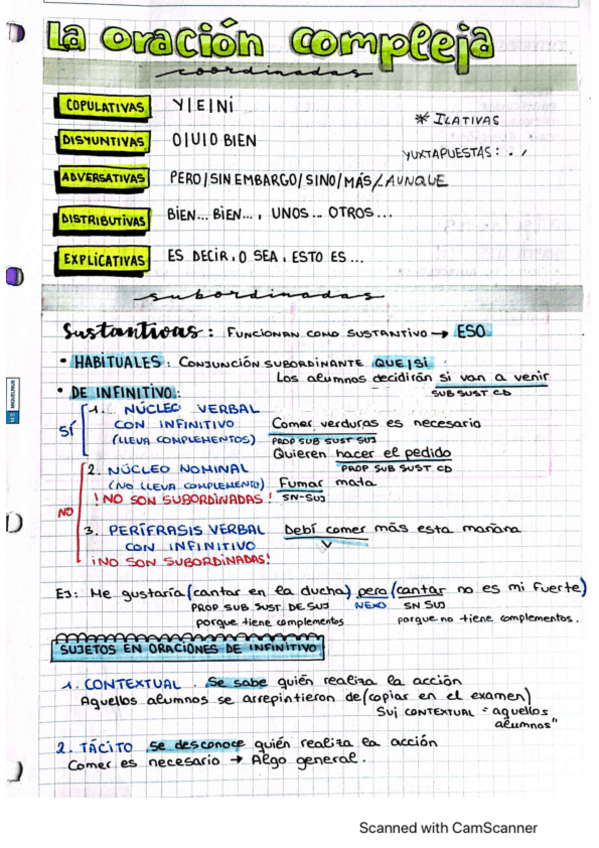 La oración compleja
coordinadas
COPULATIVAS Y | E | Ni
DISYUNTIVAS O | U | O BIEN
* ILATIVAS
YUXTAPUESTAS: . ,
ADVERSATIVAS PERO / SIN EMBARGO / SINO / MÁS / AUNQUE
DISTRIBUTIVAS BIEN... BIEN..., UNOS... OTROS...
EXPLICATIVAS ES DECIR, O SEA, ESTO ES...
subordinadas
Sustantivas: FUNCIONAN COMO SUSTANTIVO → ESO
• HABITUALES: CONJUNCIÓN SUBORDINANTE QUE | SI
Los alumnos decidirán si van a venir
SUB SUST CD
• DE INFINITIVO:
SÍ
1. NÚCLEO VERBAL
CON INFINITIVO Comer verduras es necesario
(LLEVA COMPLEMENTOS) PROP SUB SUST SUJ
Quieren hacer el pedido
PROP SUB SUST CD
NO
2. NÚCLEO NOMINAL
(NO LLEVA COMPLEMENTO) Fumar mata
¡NO SON SUBORDINADAS! SN-SUJ
3. PERÍFRASIS VERBAL Debí comer más esta mañana
CON INFINITIVO V
¡NO SON SUBORDINADAS!
EJ: Me gustaría (cantar en la ducha) pero (cantar no es mi fuerte)
PROP SUB SUST DE SUJ NEXO SN SUJ
porque tiene complementos porque no tiene complementos.
SUJETOS EN ORACIONES DE INFINITIVO
1. CONTEXTUAL. Se sabe quién realiza la acción
Aquellos alumnos se arrepintieron de (copiar en el examen)
SUJ CONTEXTUAL = aquellos
alumnos"
2. TÁCITO se desconoce quién realiza la acción
Comer es necesario → Algo general.
MIQUELRIUS
Scanned with CamScanner